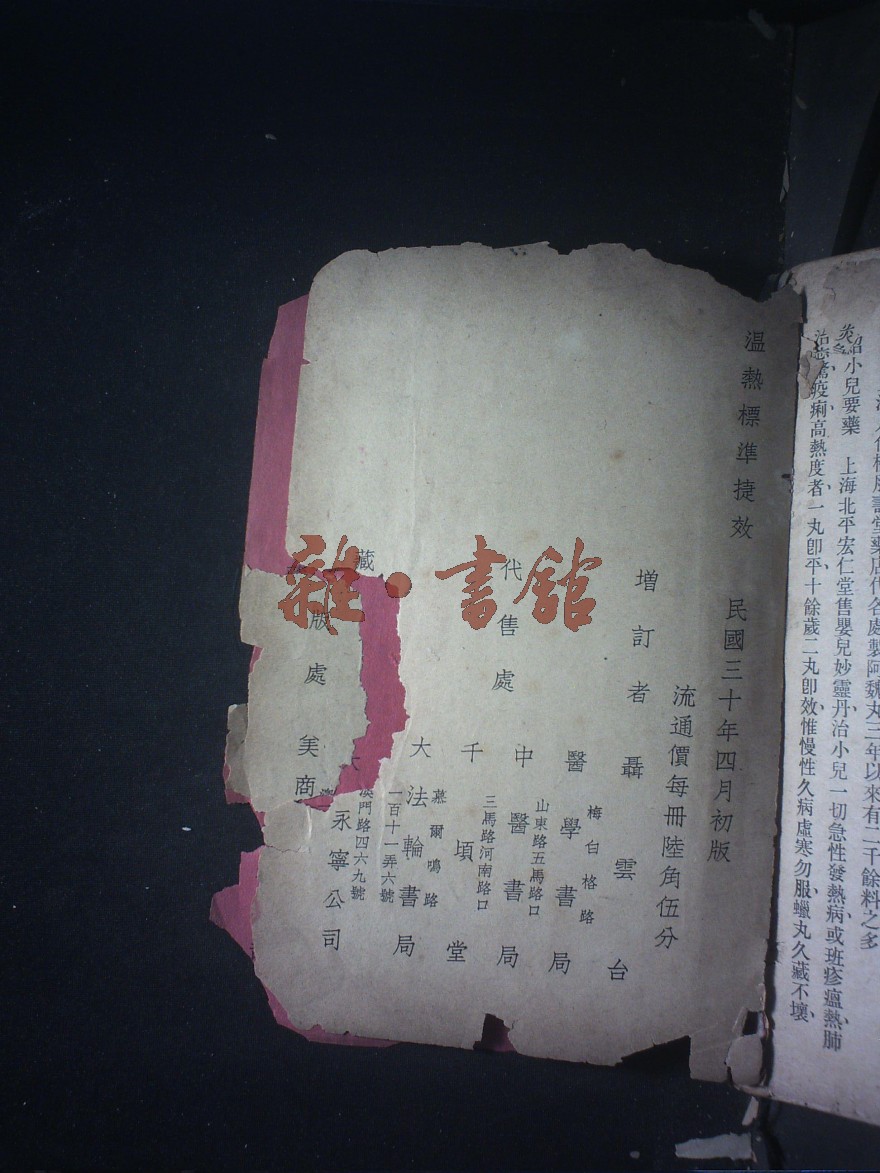 治小兒要藥　上海北平宏仁堂售嬰兒妙靈丹治小兒一切急性發熱病或班疹瘟熱肺
疫痢高熱度者一丸卽平十餘歲二丸卽效惟慢性久病虛寒勿服蠟丸久藏不壞
溫熱標準捷效　民國三十年四月初版
流通價每冊陸角伍分
增訂者　聶雲台
代售處
醫學書局
梅白格路
中醫書局
山東路五馬路口
千頃堂
三馬路河南路口
大法輪書局
慕爾鳴路
一百十一弄六號
藏版處　美商永寧公司
澳門路四六九號
雜·書館